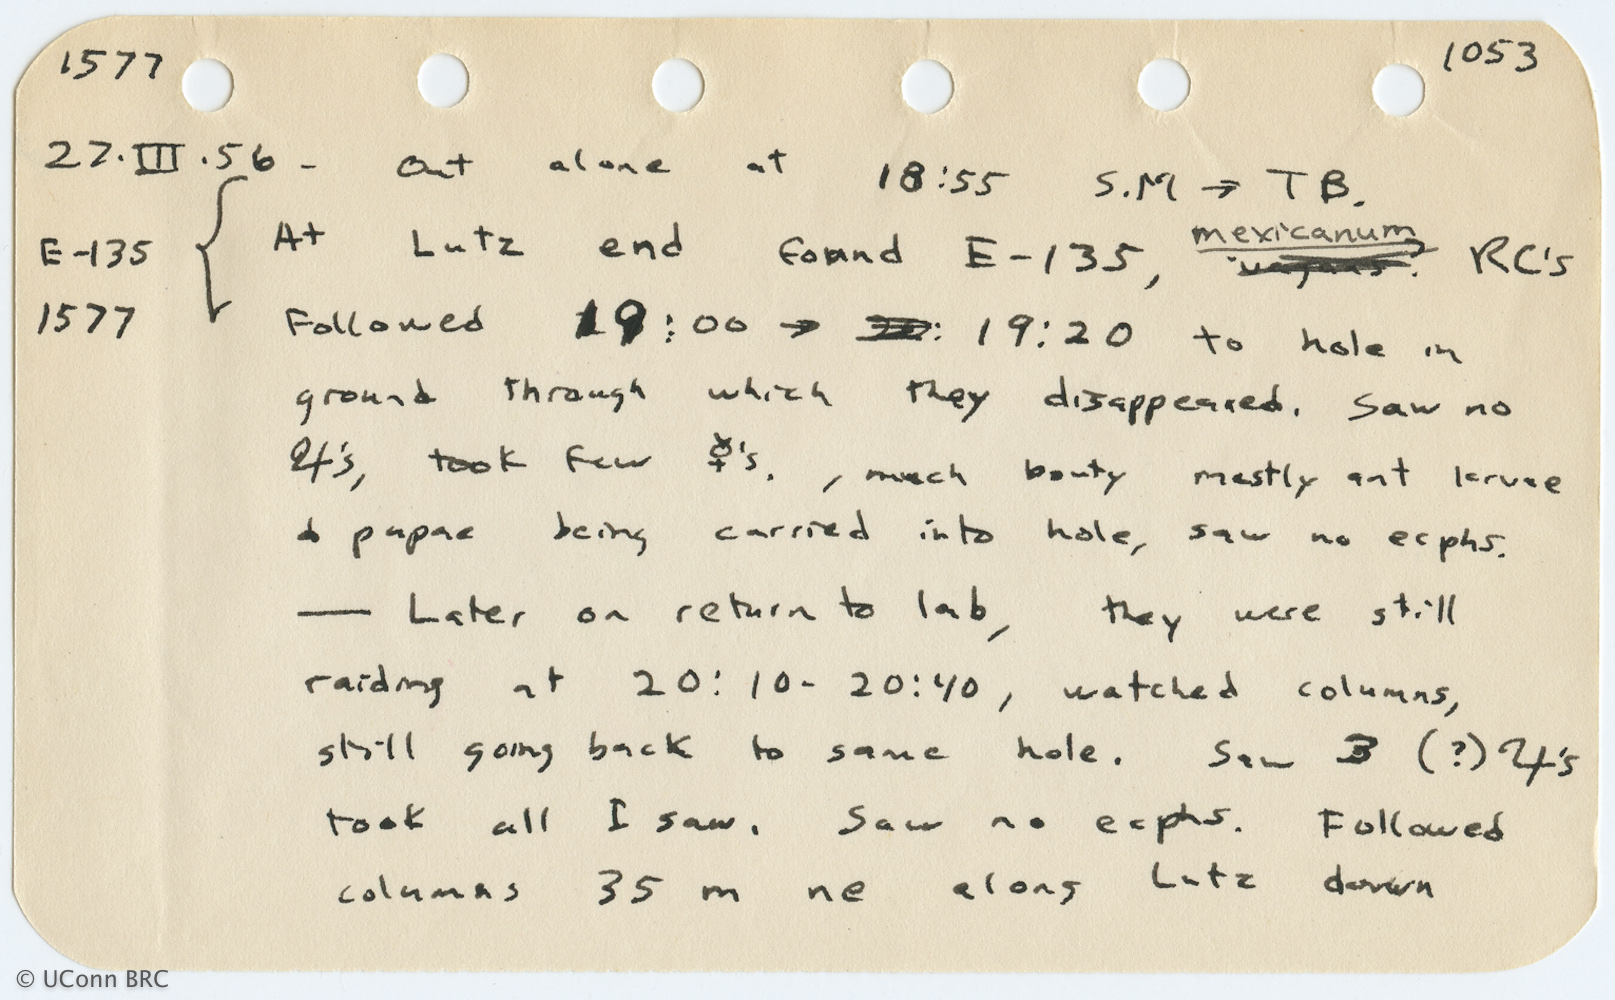 1577
1053
27.III.56 - Out alone at 18:55 S.M → T B.
E-135
1577
At Lutz end found E-135, mexicanum vagans. RC's
Followed 19:00 → 19:20 to hole in
ground through which they disappeared. Saw no
♃'s, took few ☿'s. , much booty mostly ant larvae
& pupae being carried into hole, saw no ecphs.
— Later on return to lab, they were still
raiding at 20:10- 20:40, watched columns,
still going back to same hole. Saw 3 (?) ♃'s
took all I saw. Saw no ecphs. Followed
columns 35 m ne along Lutz down
© UConn BRC